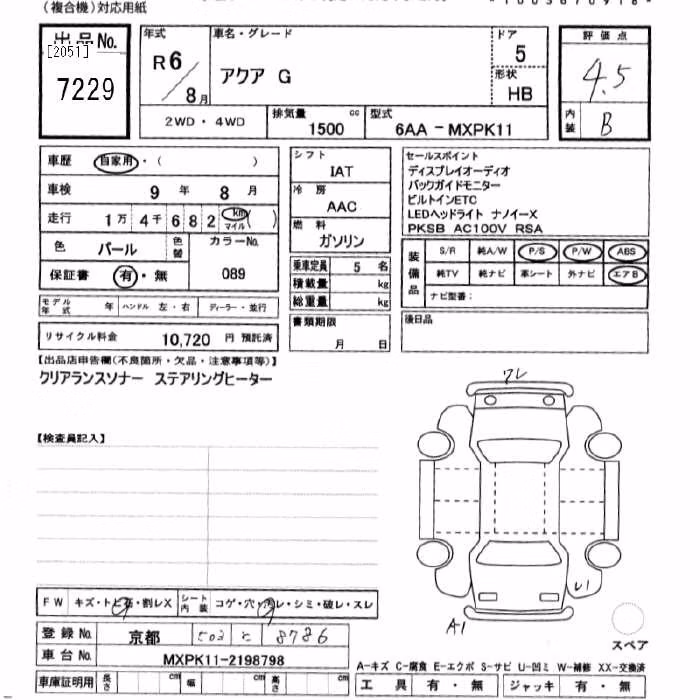 （複合機）対応用紙
出品No.
[2051]
7229
年式
R6／8月
車名・グレード
アクア G
ドア
5
形状
HB
評価点
4.5
内装
B
2WD・4WD
排気量
1500 cc
型式
6AA －MXPK11
車歴 自家用・（ ）
車検 9 年 8 月
走行 1万 4千 6 8 2 km マイル ( )
色 パール 色替 カラーNo.
保証書 有・無 089
モデル年式 年 ハンドル 左・右 ディーラー・並行
リサイクル料金 10,720 円 預託済
シフト
IAT
冷房
AAC
燃料
ガソリン
乗車定員 5 名
積載量 kg
総重量 kg
書類期限
月 日
セールスポイント
ディスプレイオーディオ
バックガイドモニター
ビルトインETC
LEDヘッドライト ナノイーX
PKSB AC100V RSA
装備品
S/R 純A/W P/S P/W ABS
純TV 純ナビ 革シート 外ナビ エアB
ナビ型番：
後日品
【出品店申告欄(不良箇所・欠品・注意事項等)】
クリアランスソナー ステアリングヒーター
【検査員記入】
ワレ
U1
A1
スペア
FW キズ・トビ石・割レX シート内装 コゲ・穴・汚レ・シミ・破レ・スレ
登録No. 京都 502 と 8786
車台No. MXPK11-2198798
車庫証明用 長さ cm 幅 cm 高さ cm
A-キズ C-腐食 E-エクボ S-サビ U-凹ミ W-補修 XX-交換済
工具 有・無 ジャッキ 有・無